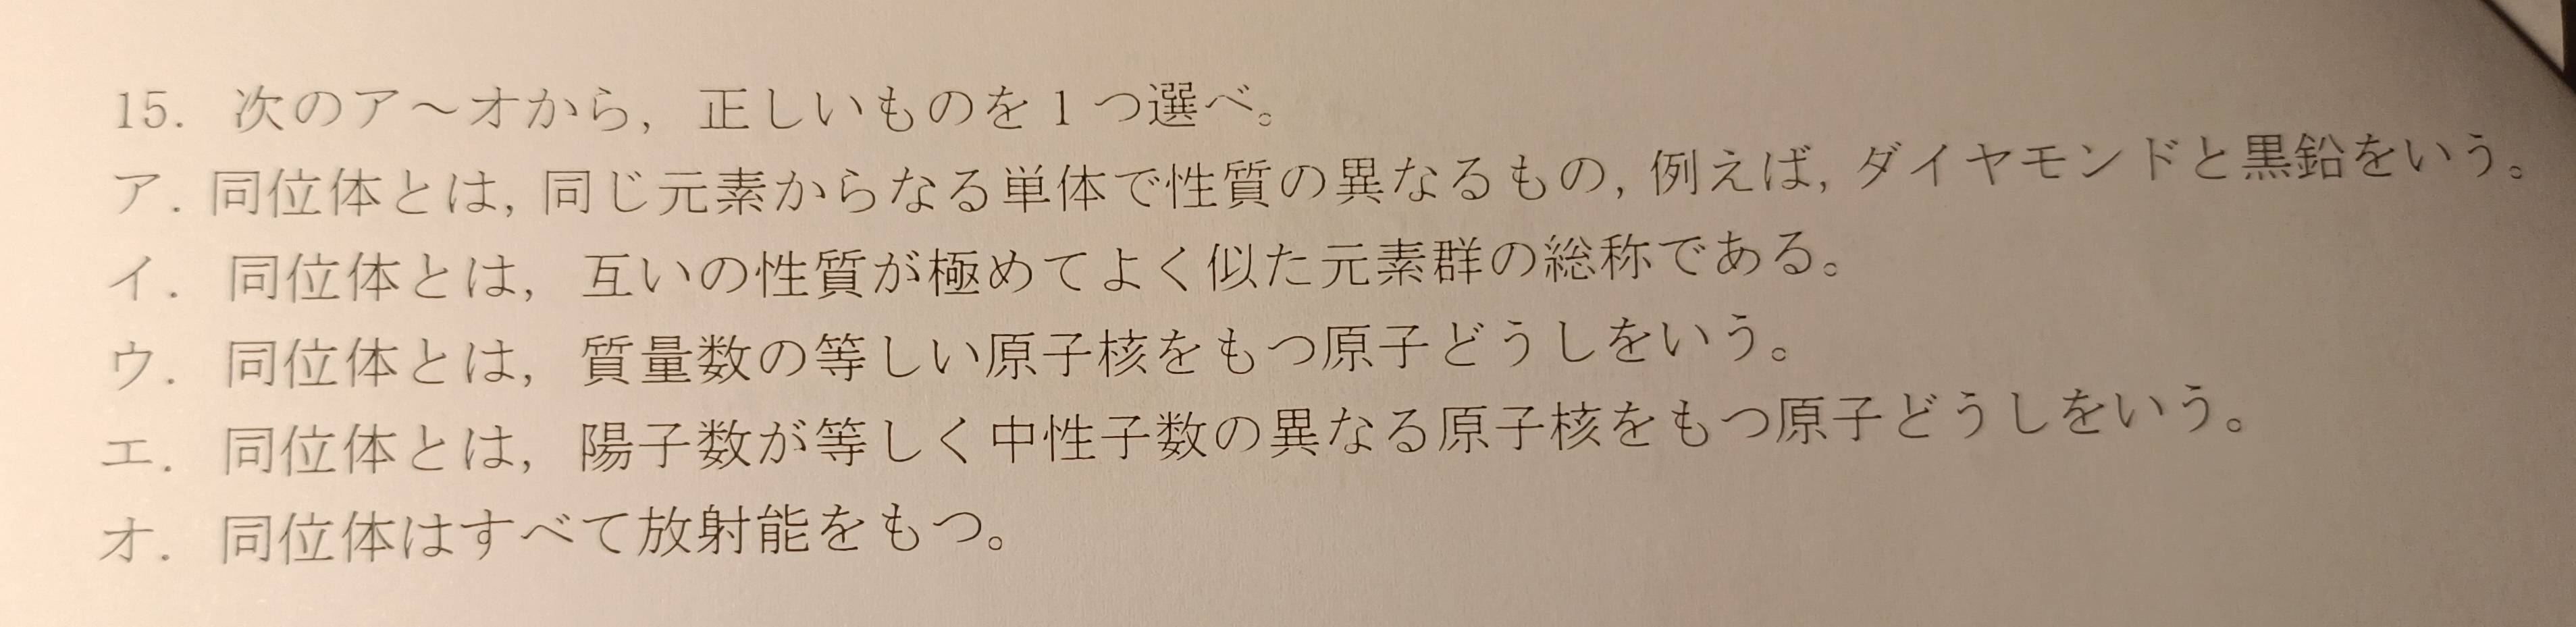 15. 次のア～オから，正しいものを1つ選べ。
ア. 同位体とは, 同じ元素からなる単体で性質の異なるもの, 例えば, ダイヤモンドと黒鉛をいう。
イ. 同位体とは, 互いの性質が極めてよく似た元素群の総称である。
ウ. 同位体とは, 質量数の等しい原子核をもつ原子どうしをいう。
エ. 同位体とは, 陽子数が等しく中性子数の異なる原子核をもつ原子どうしをいう。
オ. 同位体はすべて放射能をもつ。